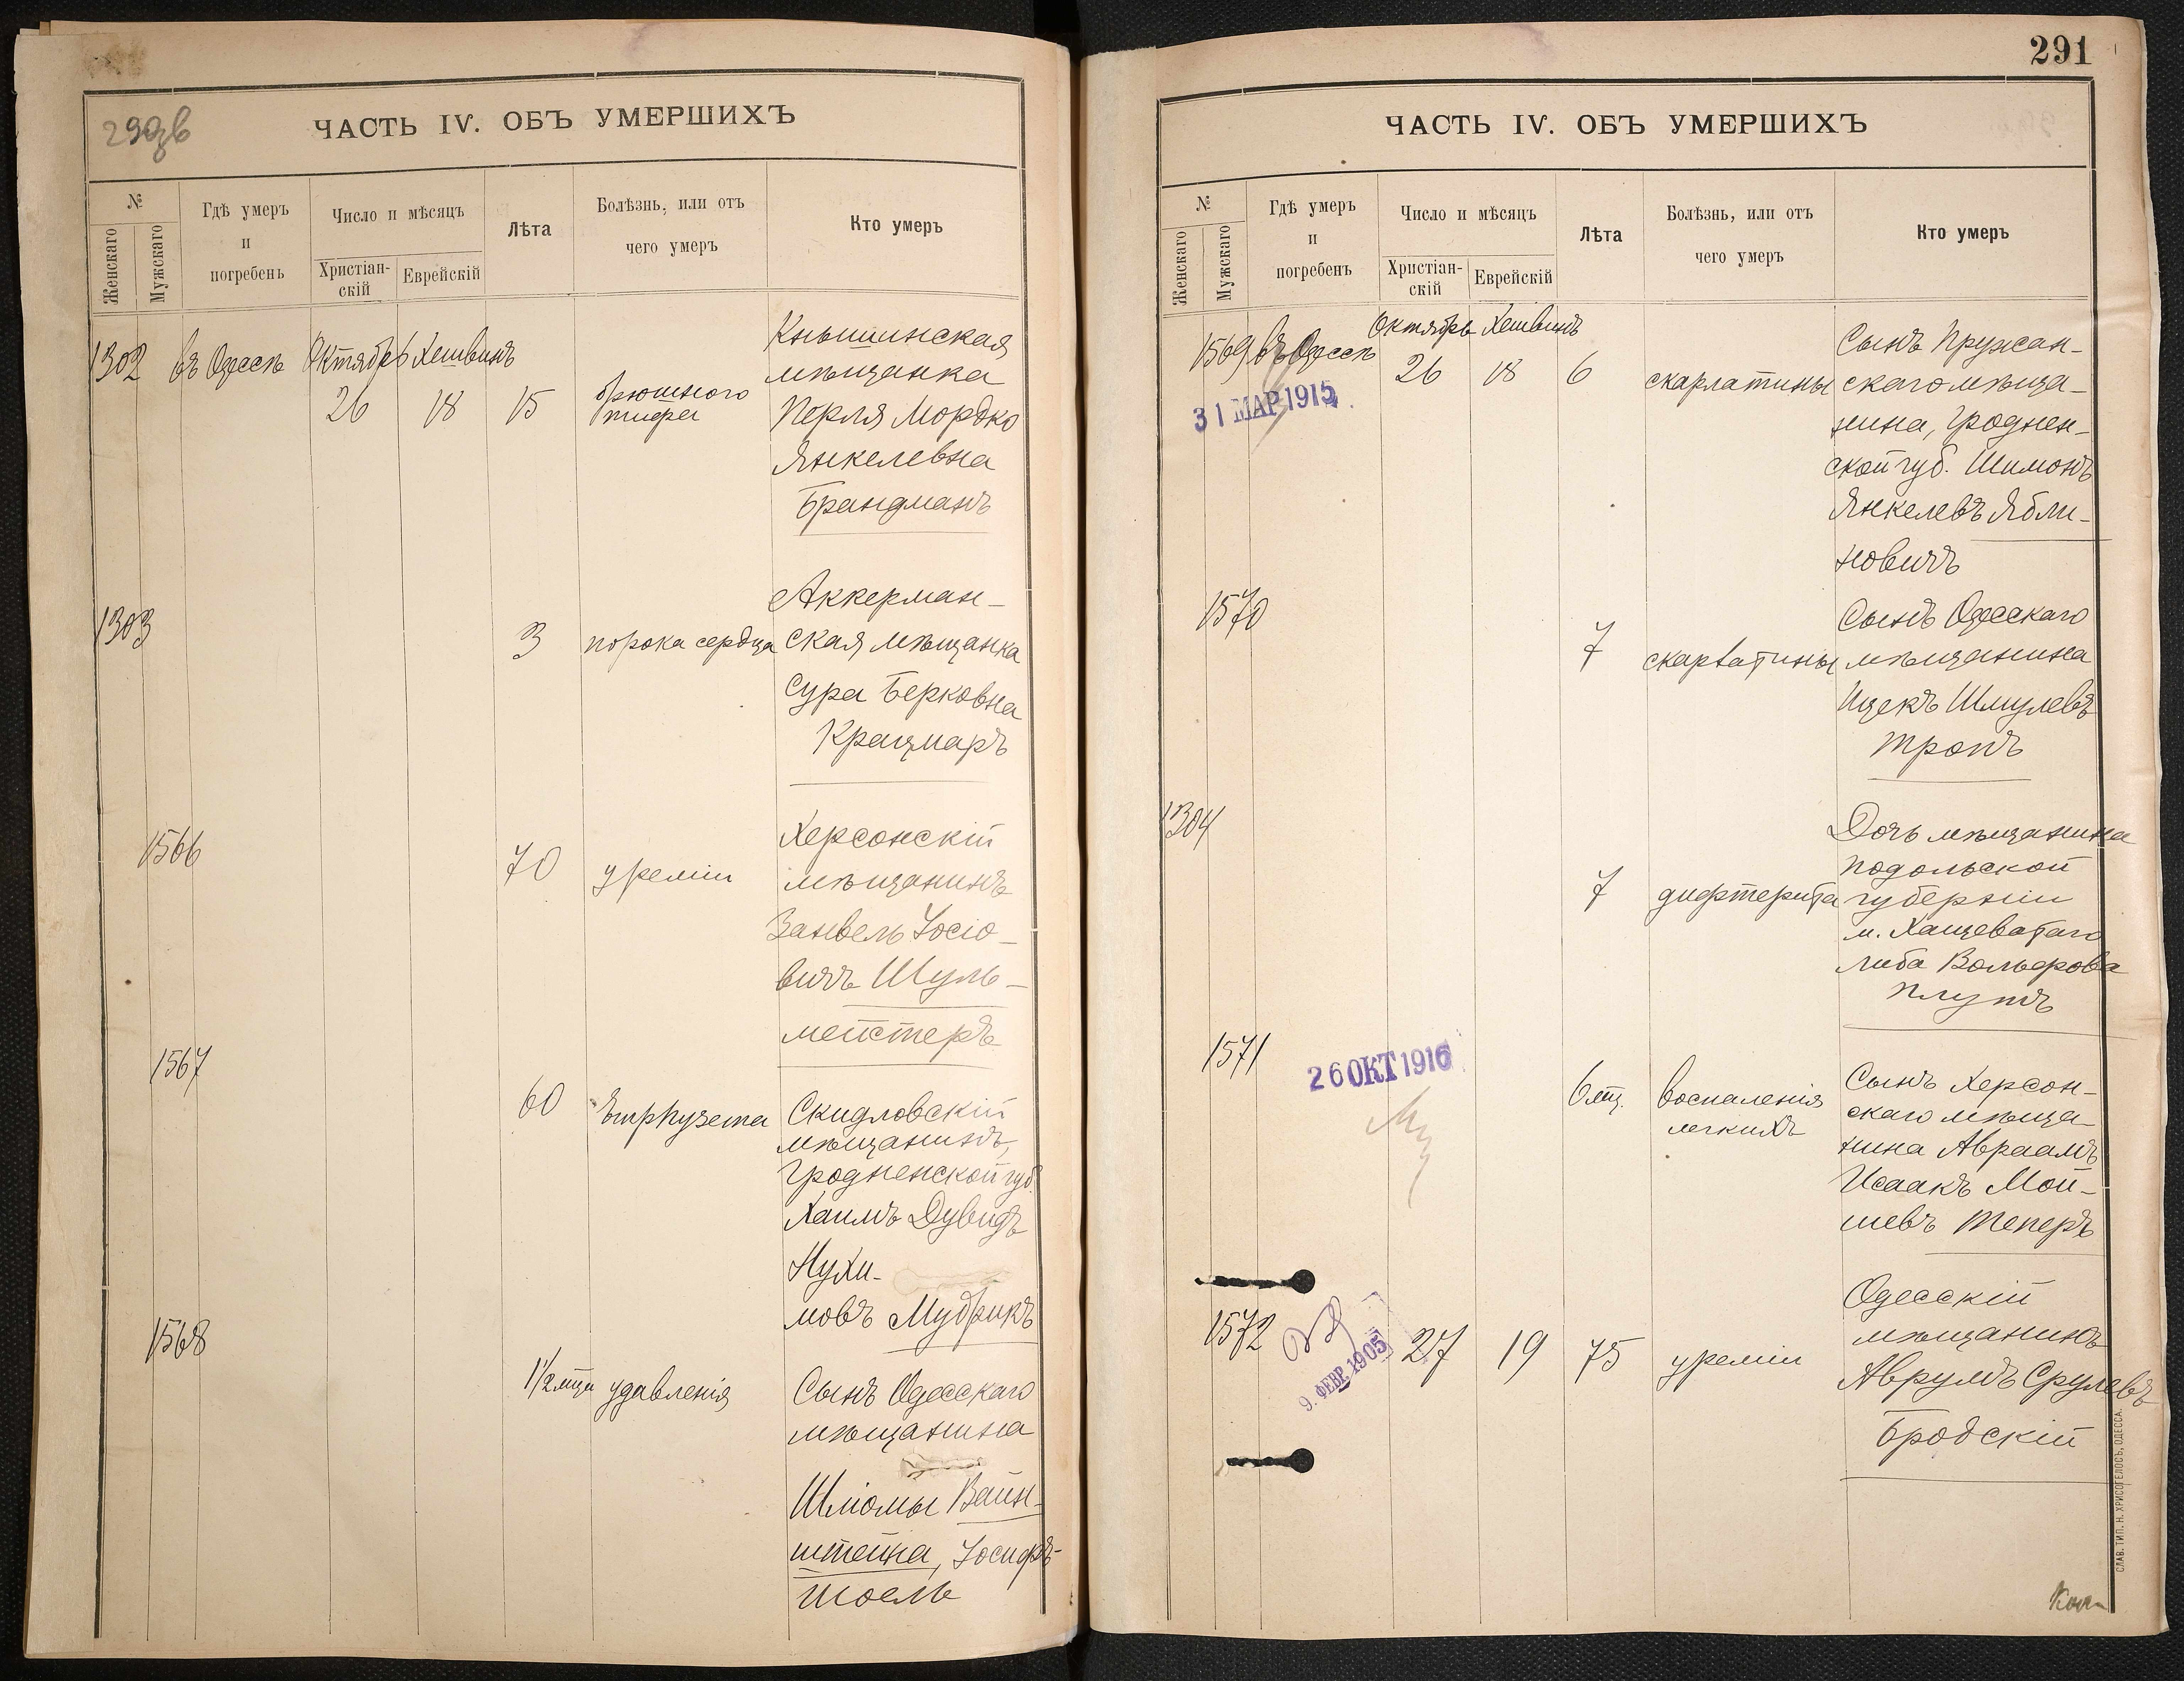 290об
ЧАСТЬ IV. ОБЪ УМЕРШИХЪ
№
Женскаго
Мужскаго
Гдѣ умеръ
и
погребенъ
Число и мѣсяцъ
Христіан-
скій
Еврейскій
Лѣта
Болѣзнь, или отъ
чего умеръ
Кто умеръ
1302 въ Одессѣ Октябрь Хешвинъ
26 18 15 брюшного
тифа
Кнышинская
мѣщанка
Перля Мордко
Янкелевна
Брандманъ
1303
3 порока сердца
Аккерман-
ская мѣщанка
Сура Берковна
Крацмаръ
1566
70 уреміи
Херсонскій
мѣщанинъ
Занвель Іосіо-
вичъ Шуль-
мейстеръ
1567
60
Скидловскій
мѣщанинъ,
Гродненской губ.
Хаимъ Дувидъ
Нухи-
мовъ Мудрикъ
1568
1½ мца удавленія
Сынъ Одесскаго
мѣщанина
Шліомы Вайн-
штейна, Іосифъ-
Шоель
291
ЧАСТЬ IV. ОБЪ УМЕРШИХЪ
№
Женскаго
Мужскаго
Гдѣ умеръ
и
погребенъ
Число и мѣсяцъ
Христіан-
скій
Еврейскій
Лѣта
Болѣзнь, или отъ
чего умеръ
Кто умеръ
1569 въ Одессѣ Октябрь Хешвинъ
26 18 6 скарлатины
31 МАР 1915
Сынъ Пружан-
скаго мѣща-
нина, Гроднен-
ской губ. Шимонъ
Янкелевъ Ябли-
новичъ
1570
7 скарлатины
Сынъ Одесскаго
мѣщанина
Ицекъ Шмулевъ
Тропъ
1304
7 дифтерита
Дочь мѣщанина
Подольской
губерніи
м. Хащеватаго
Либа Вольфова
Плутъ
1571
26 ОКТ 1916
6 мц. воспаленія
легкихъ
Сынъ Херсон-
скаго мѣща-
нина Авраамъ
Исаакъ Мой-
шевъ Теперъ
1572
9. ФЕВР. 1905
27 19 75 уреміи
Одесскій
мѣщанинъ
Аврумъ Срулевъ
Бродскій
СЛАВ. ТИП. Н. ХРИСОГЕЛОСЪ, ОДЕССА.